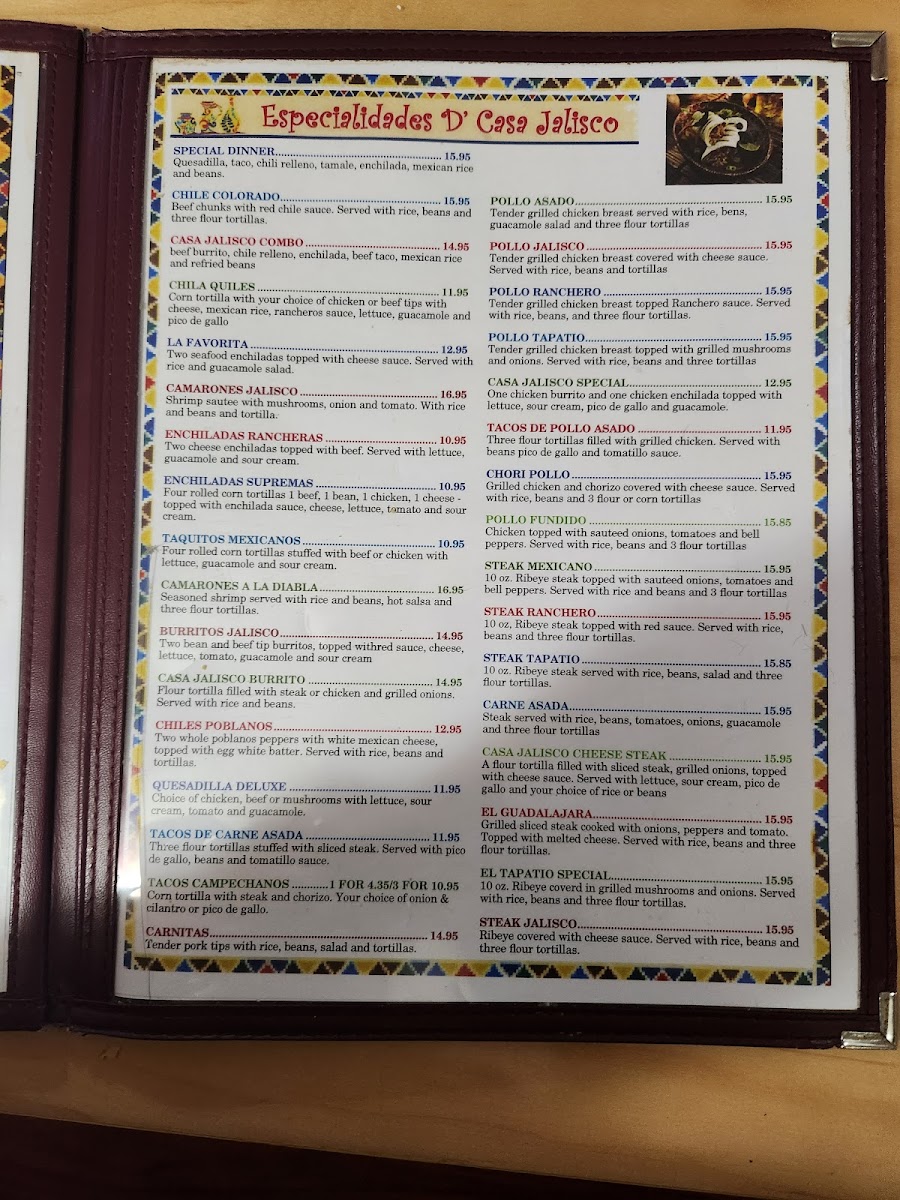 Especialidades D' Casa Jalisco
SPECIAL DINNER.................................................... 15.95
Quesadilla, taco, chili relleno, tamale, enchilada, mexican rice
and beans.
CHILE COLORADO................................................... 15.95
Beef chunks with red chile sauce. Served with rice, beans and
three flour tortillas.
CASA JALISCO COMBO .......................................... 14.95
beef burrito, chile relleno, enchilada, beef taco, mexican rice
and refried beans
CHILA QUILES .......................................................... 11.95
Corn tortilla with your choice of chicken or beef tips with
cheese, mexican rice, rancheros sauce, lettuce, guacamole and
pico de gallo
LA FAVORITA ............................................................ 12.95
Two seafood enchiladas topped with cheese sauce. Served with
rice and guacamole salad.
CAMARONES JALISCO ............................................ 16.95
Shrimp sautee with mushrooms, onion and tomato. With rice
and beans and tortilla.
ENCHILADAS RANCHERAS ................................... 10.95
Two cheese enchiladas topped with beef. Served with lettuce,
guacamole and sour cream.
ENCHILADAS SUPREMAS ....................................... 10.95
Four rolled corn tortillas 1 beef, 1 bean, 1 chicken, 1 cheese -
topped with enchilada sauce, cheese, lettuce, tomato and sour
cream.
TAQUITOS MEXICANOS .......................................... 10.95
Four rolled corn tortillas stuffed with beef or chicken with
lettuce, guacamole and sour cream.
CAMARONES A LA DIABLA.................................... 16.95
Seasoned shrimp served with rice and beans, hot salsa and
three flour tortillas.
BURRITOS JALISCO................................................ 14.95
Two bean and beef tip burritos, topped withred sauce, cheese,
lettuce, tomato, guacamole and sour cream
CASA JALISCO BURRITO ........................................ 14.95
Flour tortilla filled with steak or chicken and grilled onions.
Served with rice and beans.
CHILES POBLANOS.................................................. 12.95
Two whole poblanos peppers with white mexican cheese,
topped with egg white batter. Served with rice, beans and
tortillas.
QUESADILLA DELUXE ............................................ 11.95
Choice of chicken, beef or mushrooms with lettuce, sour
cream, tomato and guacamole.
TACOS DE CARNE ASADA ....................................... 11.95
Three flour tortillas stuffed with sliced steak. Served with pico
de gallo, beans and tomatillo sauce.
TACOS CAMPECHANOS ...........1 FOR 4.35/3 FOR 10.95
Corn tortilla with steak and chorizo. Your choice of onion &
cilantro or pico de gallo.
CARNITAS.................................................................. 14.95
Tender pork tips with rice, beans, salad and tortillas.
POLLO ASADO.......................................................... 15.95
Tender grilled chicken breast served with rice, bens,
guacamole salad and three flour tortillas
POLLO JALISCO ....................................................... 15.95
Tender grilled chicken breast covered with cheese sauce.
Served with rice, beans and tortillas
POLLO RANCHERO .................................................. 15.95
Tender grilled chicken breast topped Ranchero sauce. Served
with rice, beans, and three flour tortillas.
POLLO TAPATIO....................................................... 15.95
Tender grilled chicken breast topped with grilled mushrooms
and onions. Served with rice, beans and three tortillas
CASA JALISCO SPECIAL.......................................... 12.95
One chicken burrito and one chicken enchilada topped with
lettuce, sour cream, pico de gallo and guacamole.
TACOS DE POLLO ASADO ....................................... 11.95
Three flour tortillas filled with grilled chicken. Served with
beans pico de gallo and tomatillo sauce.
CHORI POLLO .......................................................... 15.95
Grilled chicken and chorizo covered with cheese sauce. Served
with rice, beans and 3 flour or corn tortillas
POLLO FUNDIDO ..................................................... 15.85
Chicken topped with sauteed onions, tomatoes and bell
peppers. Served with rice, beans and 3 flour tortillas
STEAK MEXICANO ................................................... 15.95
10 oz. Ribeye steak topped with sauteed onions, tomatoes and
bell peppers. Served with rice and beans and 3 flour tortillas
STEAK RANCHERO................................................... 15.95
10 oz, Ribeye steak topped with red sauce. Served with rice,
beans and three flour tortillas.
STEAK TAPATIO ....................................................... 15.85
10 oz. Ribeye steak served with rice, beans, salad and three
flour tortillas.
CARNE ASADA.......................................................... 15.95
Steak served with rice, beans, tomatoes, onions, guacamole
and three flour tortillas
CASA JALISCO CHEESE STEAK ............................. 15.95
A flour tortilla filled with sliced steak, grilled onions, topped
with cheese sauce. Served with lettuce, sour cream, pico de
gallo and your choice of rice or beans
EL GUADALAJARA................................................... 15.95
Grilled sliced steak cooked with onions, peppers and tomato.
Topped with melted cheese. Served with rice, beans and three
flour tortillas.
EL TAPATIO SPECIAL............................................... 15.95
10 oz. Ribeye coverd in grilled mushrooms and onions. Served
with rice, beans and three flour tortillas.
STEAK JALISCO........................................................ 15.95
Ribeye covered with cheese sauce. Served with rice, beans and
three flour tortillas.